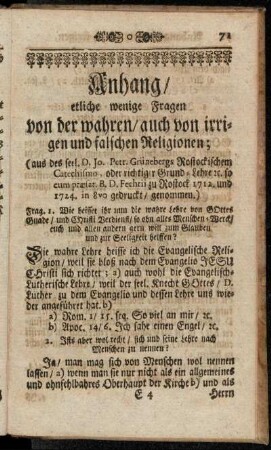 o 71
Anhang/
etliche wenige Fragen
von der wahren/ auch von irri-
gen und falschen Religionen;
(aus des seel. D. Jo. Petr. Grünebergs Rostockischem
Catechismo, oder richtiger Grund-Lehre ꝛc. so
cum præfat. B. D. Fechtii zu Rostock 1712. und
1724. in 8vo gedruckt/ genommen.)
Frag. 1. Wie heisset ihr nun die wahre Lehre von GOttes
Gnade/ und Christi Verdienst/ so ohn alles Menschen-Werck/
euch und allen andern gern will zum Glauben
und zur Seeligkeit helffen?
Die wahre Lehre heisse ich die Evangelische Reli-
gion/ weil sie bloß nach dem Evangelio JESU
Christi sich richtet: a) auch wohl die Evangelisch-
Lutherische Lehre/ weil der seel. Knecht GOttes/ D.
Luther zu dem Evangelio und dessen Lehre uns wie-
der angeführet hat. b)
a) Rom. 1/ 15. sq. So viel an mir/ ꝛc.
b) Apoc. 14/6. Ich sahe einen Engel/ ꝛc.
2. Ists aber wol recht/ sich und seine Lehre nach
Menschen zu nennen?
Ja/ man mag sich von Menschen wol nennen
lassen/ a) wenn man sie nur nicht als ein allgemeines
und ohnfehlbahres Oberhaupt der Kirche b) und als
E 4 Herrn